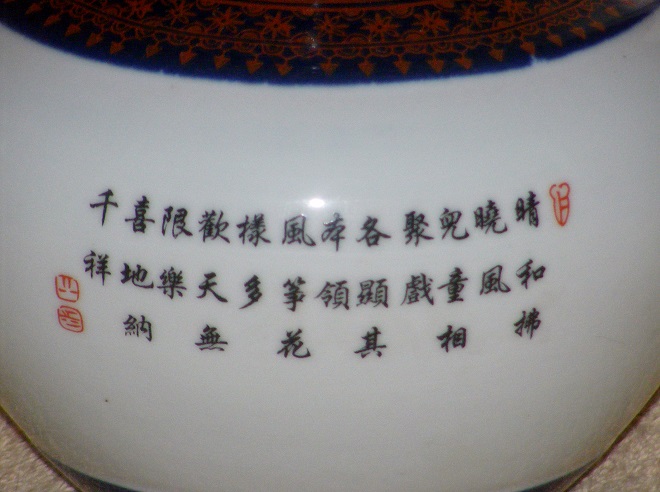 晴和拂
曉風
兒童相
聚戲
各顯其
本領
風箏花
樣多
歡天無
限樂
喜地納
千祥